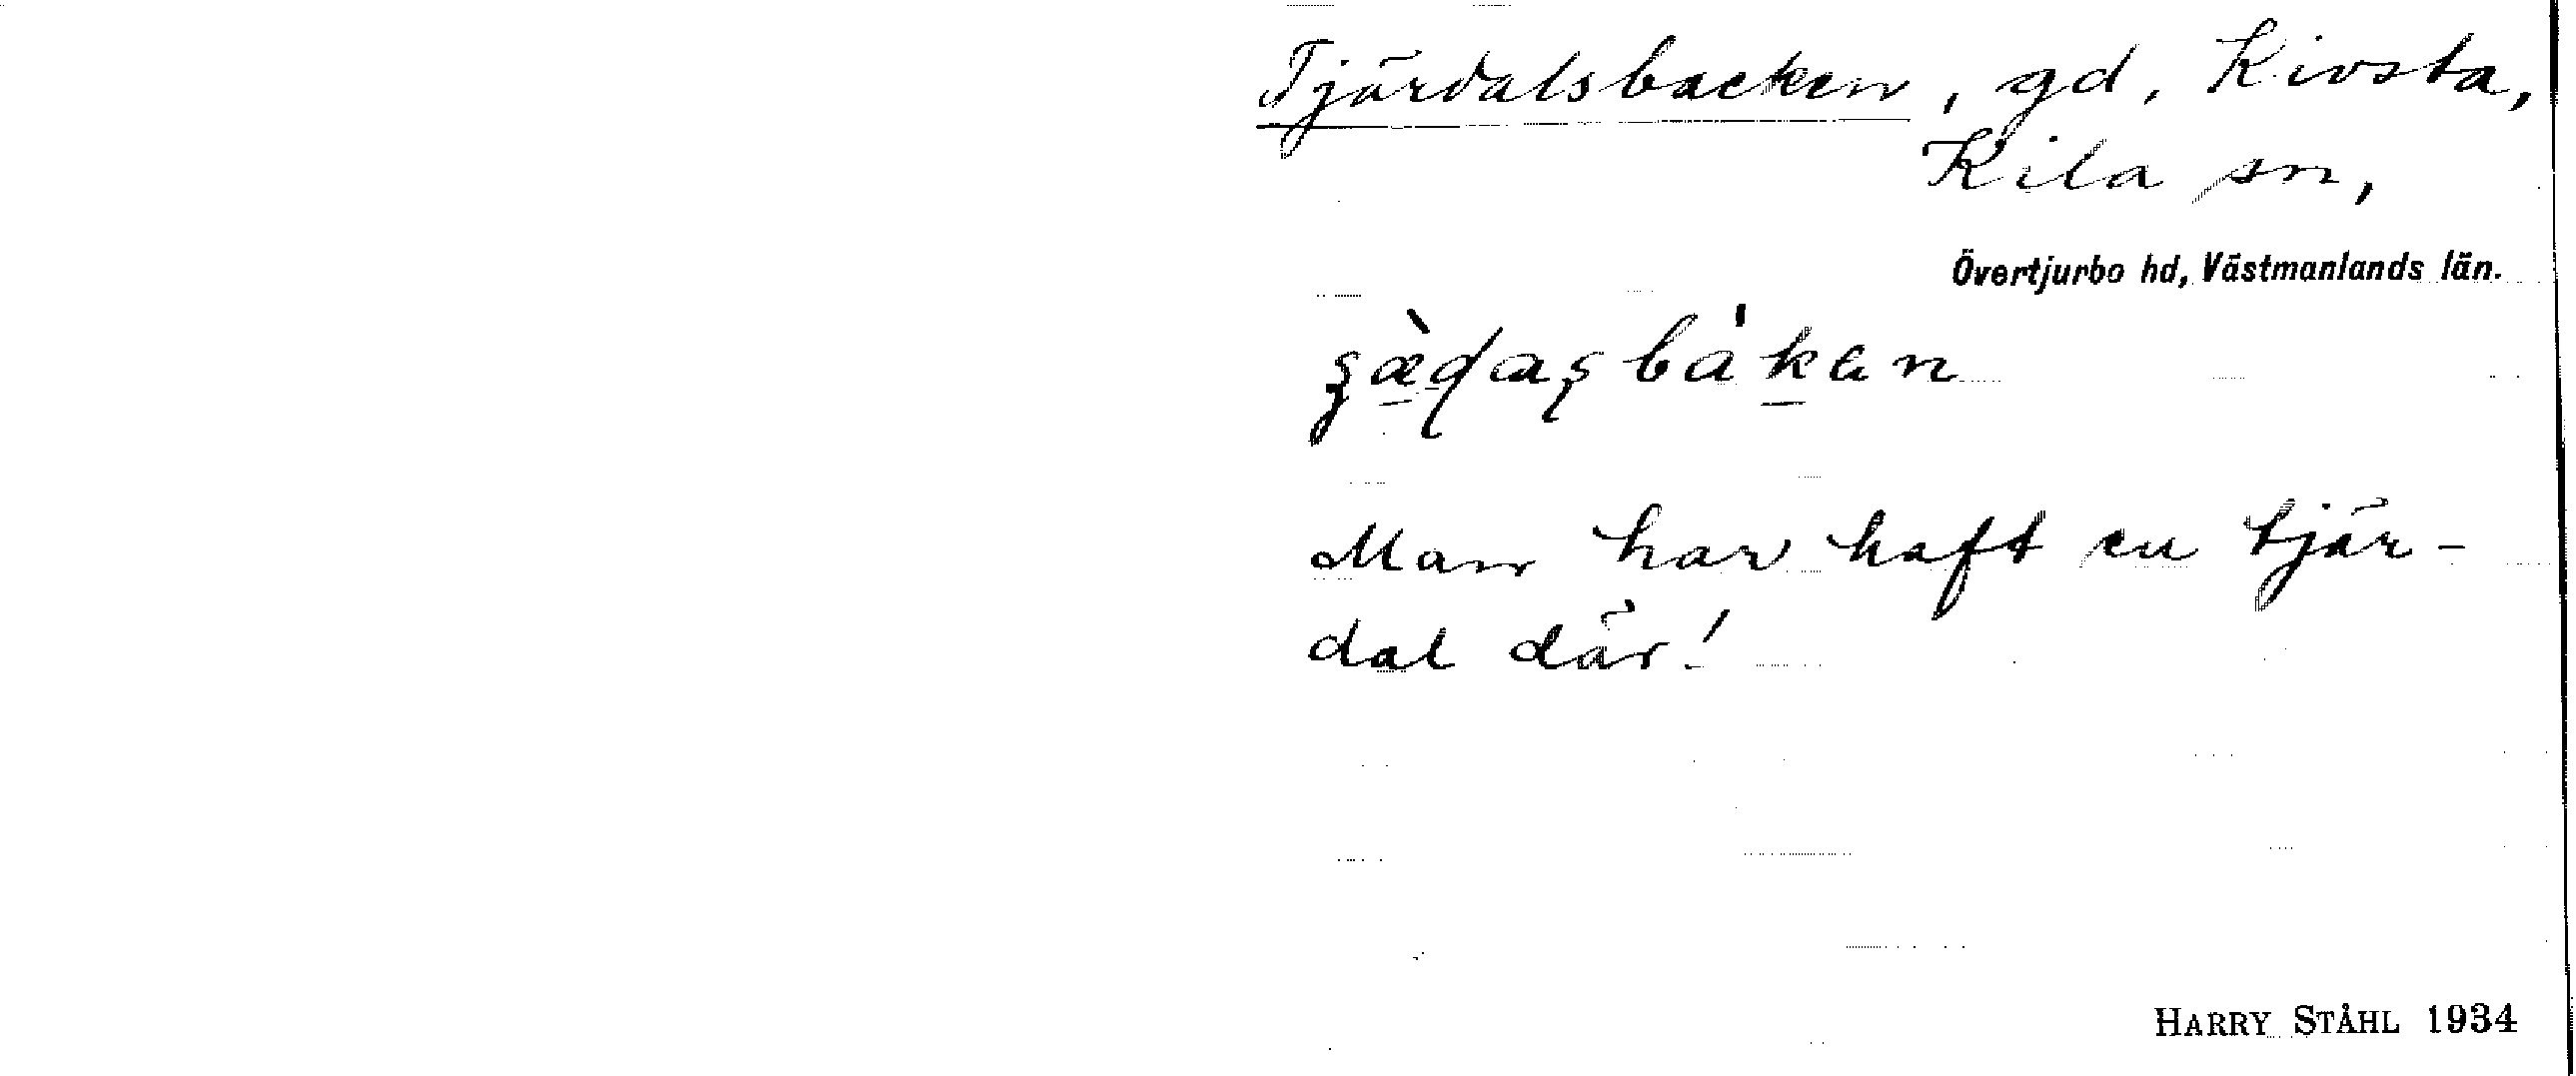 Tjärdalsbacken, gd, Kivsta,
Kila sn,
Övertjurbo hd, Västmanlands län.
Man har haft en tjär-
dal där!
HARRY STÅHL 1934